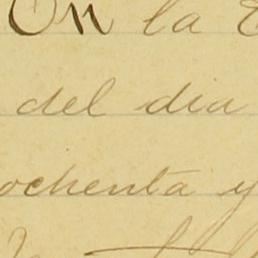 On la
del dia
ochenta y